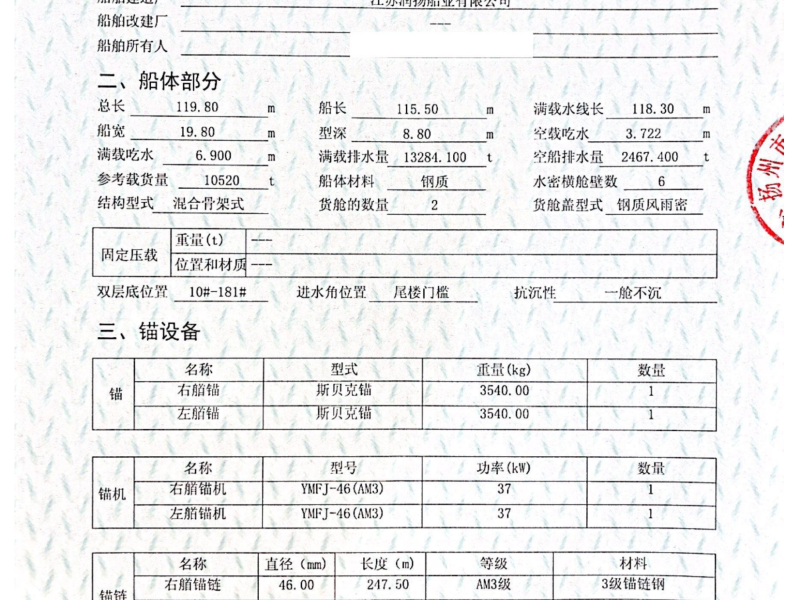 江苏润扬船业有限公司
船舶改建厂 ---
船舶所有人
二、船体部分
总长 119.80 m 船长 115.50 m 满载水线长 118.30 m
船宽 19.80 m 型深 8.80 m 空载吃水 3.722 m
满载吃水 6.900 m 满载排水量 13284.100 t 空船排水量 2467.400 t
参考载货量 10520 t 船体材料 钢质 水密横舱壁数 6
结构型式 混合骨架式 货舱的数量 2 货舱盖型式 钢质风雨密
固定压载 重量(t) ---
位置和材质 ---
双层底位置 10#-181# 进水角位置 尾楼门槛 抗沉性 一舱不沉
三、锚设备
锚 名称 型式 重量(kg) 数量
右艏锚 斯贝克锚 3540.00 1
左艏锚 斯贝克锚 3540.00 1
锚机 名称 型号 功率(kW) 数量
右艏锚机 YMFJ-46(AM3) 37 1
左艏锚机 YMFJ-46(AM3) 37 1
锚链 名称 直径(mm) 长度(m) 等级 材料
右艏锚链 46.00 247.50 AM3级 3级锚链钢
扬州市